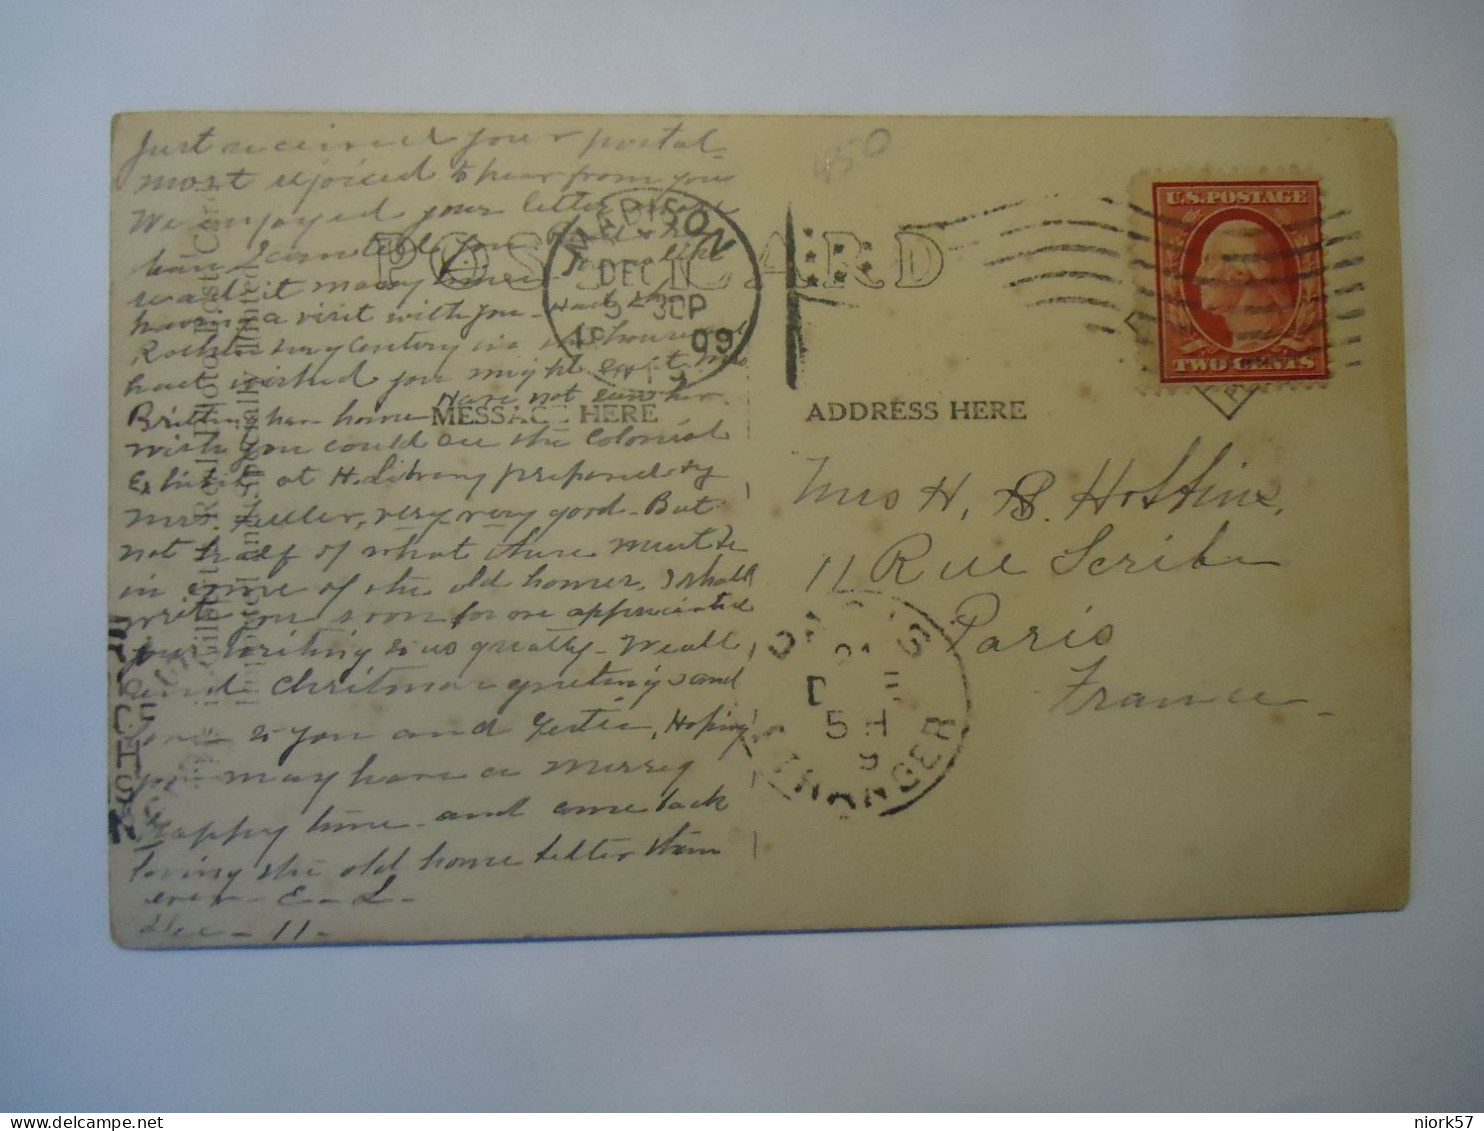 Just received your postal-
most rejoiced to hear from you
We enjoyed your letter more
than I can tell you
read it many times like
having a visit with you - Had the
Century in the house
had wished you might
Brittingham home Have not seen her
wish you could see the Colonial
Exhibit at H. Library prepared by
Mrs. Fuller, very very good - But
not half of what there must be
in some of the old homes, I shall
write you soon for we appreciated
your writing to us greatly - We all
send Christmas greetings and
love to you and Hoping
you may have a merry
happy time - and come back
loving the old home better than
ever - E - L -
Dec - 11 -
POST CARD
MESSAGE HERE
ADDRESS HERE
MADISON
DEC 11
5 - 30P
1909
WIS
U.S. POSTAGE
TWO CENTS
450
Mrs H. B. Hobbins,
11 Rue Scribe
Paris
France -
PARIS
21
5 H
9
ETRANGER
Real Photo Post Card
Specially Printed
niork57